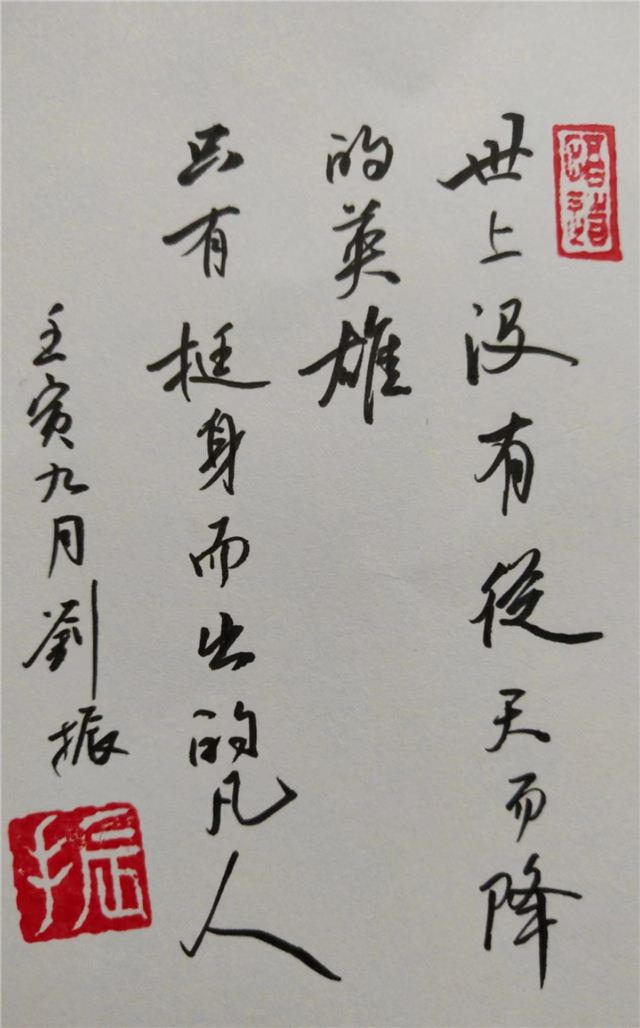 世上没有從天而降
的英雄
只有挺身而出的凡人
壬寅九月劉振
振